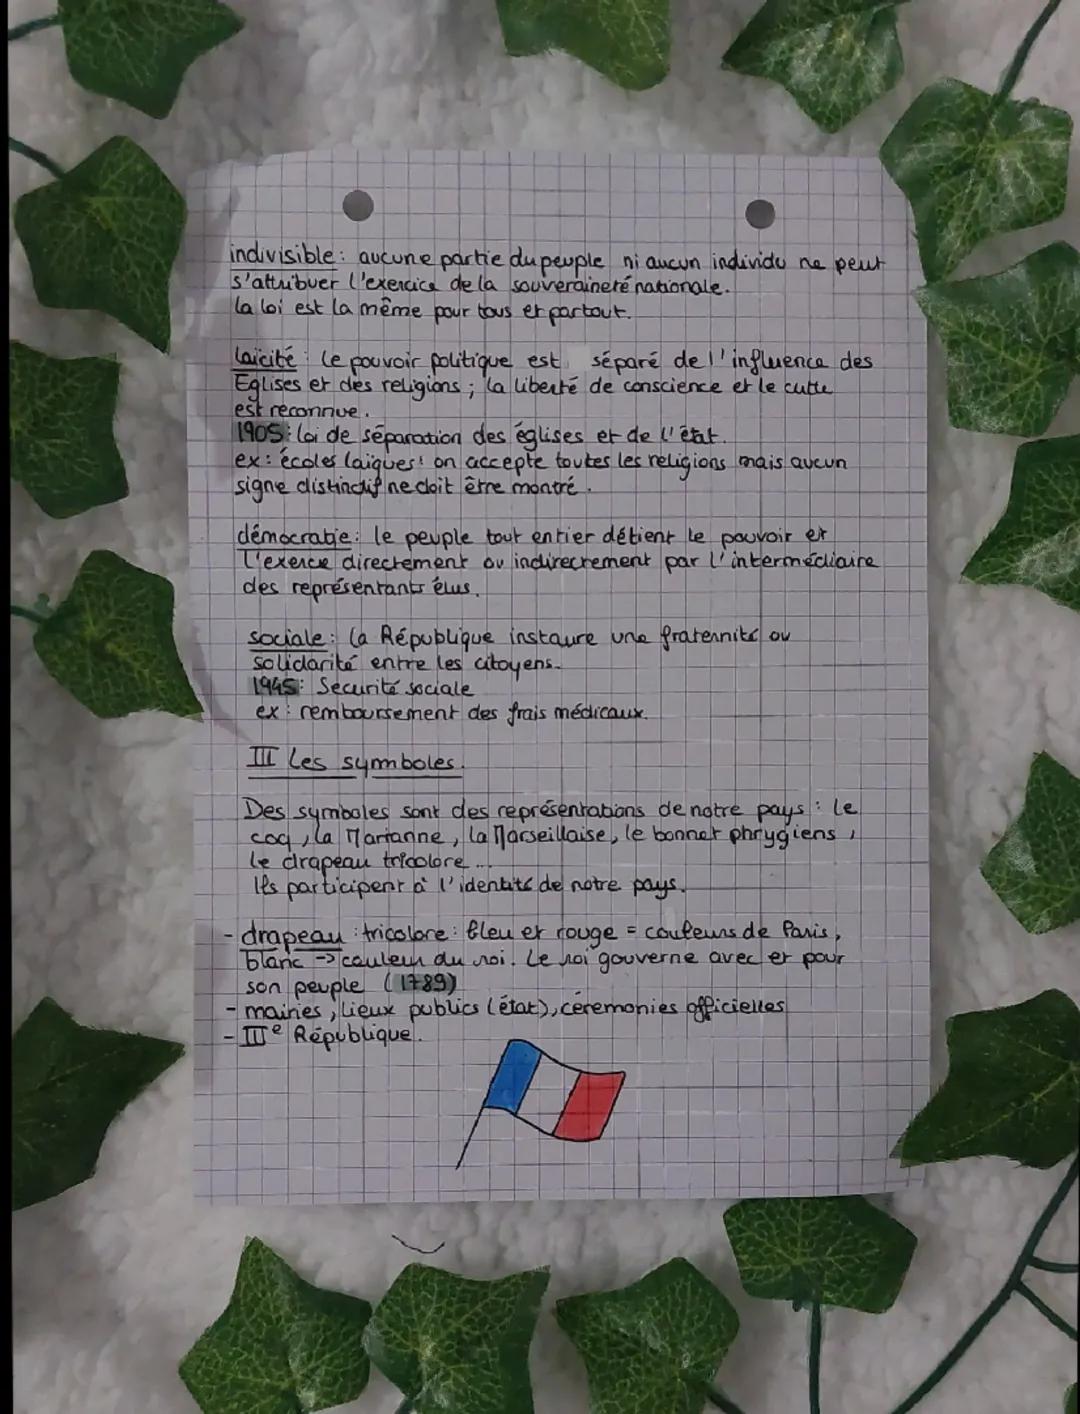 indivisible : aucune partie du peuple ni aucun individu ne peut
s'attribuer l'exercice de la souveraineté nationale.
La loi est la même pour tous et partout.
laïcité : le pouvoir politique est séparé de l'influence des
Eglises et des religions ; la liberté de conscience et le culte
est reconnue.
1905 : loi de séparation des églises et de l'état.
ex : écoles laïques : on accepte toutes les religions mais aucun
signe distinctif ne doit être montré.
démocratie : le peuple tout entier détient le pouvoir et
l'exerce directement ou indirectement par l'intermédiaire
des représentants élus.
sociale : la République instaure une fraternité ou
solidarité entre les citoyens.
1945 : Securité sociale
ex : remboursement des frais médicaux.
III Les symboles.
Des symboles sont des représentations de notre pays : le
coq, la Marianne, la Marseillaise, le bonnet phrygiens,
le drapeau tricolore...
Ils participent à l'identité de notre pays.
- drapeau : tricolore : bleu et rouge = couleurs de Paris,
blanc -> couleur du roi. Le roi gouverne avec et pour
son peuple (1789)
- mairies, lieux publics (état), cérémonies officielles
- IIIe République.